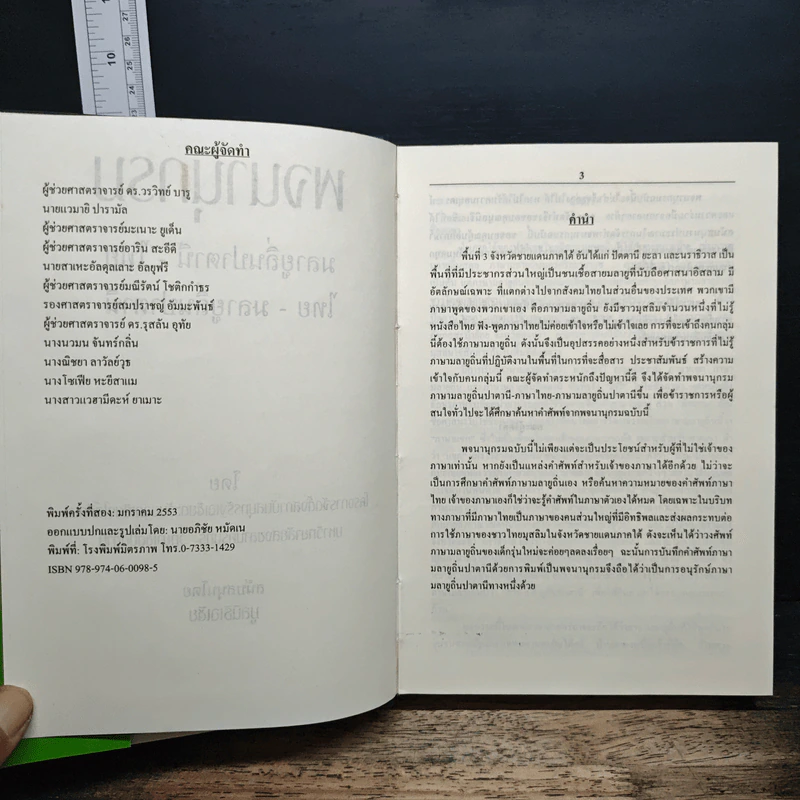 คณะผู้จัดทำ
ผู้ช่วยศาสตราจารย์ ดร.วรวิทย์ บารู
นายแวมายิ ปารามัล
ผู้ช่วยศาสตราจารย์มะเนาะ ยูเด็น
ผู้ช่วยศาสตราจารย์อาริน สะอีดี
นายสาเหะอัลดุลเลาะ อัลยุฟรี
ผู้ช่วยศาสตราจารย์มณีรัตน์ โชติกกำธร
รองศาสตราจารย์สมปราชญ์ อัมมะพันธ์
ผู้ช่วยศาสตราจารย์ ดร.รุสลัน อุทัย
นางนวมน จันทร์กลิ่น
นางณิชยา ลาวัลย์วุธ
นางโซเฟีย หะยีสาแม
นางสาวแวฮามีดะห์ ยาเมาะ
พิมพ์ครั้งที่สอง: มกราคม 2553
ออกแบบปกและรูปเล่มโดย: นายอภิชัย หมัดเน
พิมพ์ที่: โรงพิมพ์มิตรภาพ โทร.0-7333-1429
ISBN 978-974-06-0098-5
3
คำนำ
พื้นที่ 3 จังหวัดชายแดนภาคใต้ อันได้แก่ ปัตตานี ยะลา และนราธิวาส เป็น
พื้นที่ที่มีประชากรส่วนใหญ่เป็นชนเชื้อสายมลายูที่นับถือศาสนาอิสลาม มี
อัตลักษณ์เฉพาะ ที่แตกต่างไปจากสังคมไทยในส่วนอื่นของประเทศ พวกเขามี
ภาษาพูดของพวกเขาเอง คือภาษามลายูถิ่น ยังมีชาวมุสลิมจำนวนหนึ่งที่ไม่รู้
หนังสือไทย ฟัง-พูดภาษาไทยไม่ค่อยเข้าใจหรือไม่เข้าใจเลย การที่จะเข้าถึงคนกลุ่ม
นี้ต้องใช้ภาษามลายูถิ่น ดังนั้นจึงเป็นอุปสรรคอย่างหนึ่งสำหรับข้าราชการที่ไม่รู้
ภาษามลายูถิ่นที่ปฏิบัติงานในพื้นที่ในการที่จะสื่อสาร ประชาสัมพันธ์ สร้างความ
เข้าใจกับคนกลุ่มนี้ คณะผู้จัดทำตระหนักถึงปัญหานี้ดี จึงได้จัดทำพจนานุกรม
ภาษามลายูถิ่นปาตานี-ภาษาไทย-ภาษามลายูถิ่นปาตานีขึ้น เพื่อข้าราชการหรือผู้
สนใจทั่วไปจะได้ศึกษาค้นหาคำศัพท์จากพจนานุกรมฉบับนี้
พจนานุกรมฉบับนี้ไม่เพียงแต่จะเป็นประโยชน์สำหรับผู้ที่ไม่ใช่เจ้าของ
ภาษาเท่านั้น หากยังเป็นแหล่งคำศัพท์สำหรับเจ้าของภาษาได้อีกด้วย ไม่ว่าจะ
เป็นการศึกษาคำศัพท์ภาษามลายูถิ่นเอง หรือค้นหาความหมายของคำศัพท์ภาษา
ไทย เจ้าของภาษาเองก็ใช่ว่าจะรู้คำศัพท์ในภาษาตัวเองได้หมด โดยเฉพาะในบริบท
ทางภาษาที่มีภาษาไทยเป็นภาษาของคนส่วนใหญ่ที่มีอิทธิพลและส่งผลกระทบต่อ
การใช้ภาษาของชาวไทยมุสลิมในจังหวัดชายแดนภาคใต้ ดังจะเห็นได้ว่าวงศัพท์
ภาษามลายูถิ่นของเด็กรุ่นใหม่จะค่อยๆลดลงเรื่อยๆ ฉะนั้นการบันทึกคำศัพท์ภาษา
มลายูถิ่นปาตานีด้วยการพิมพ์เป็นพจนานุกรมจึงถือได้ว่าเป็นการอนุรักษ์ภาษา
มลายูถิ่นปาตานีทางหนึ่งด้วย